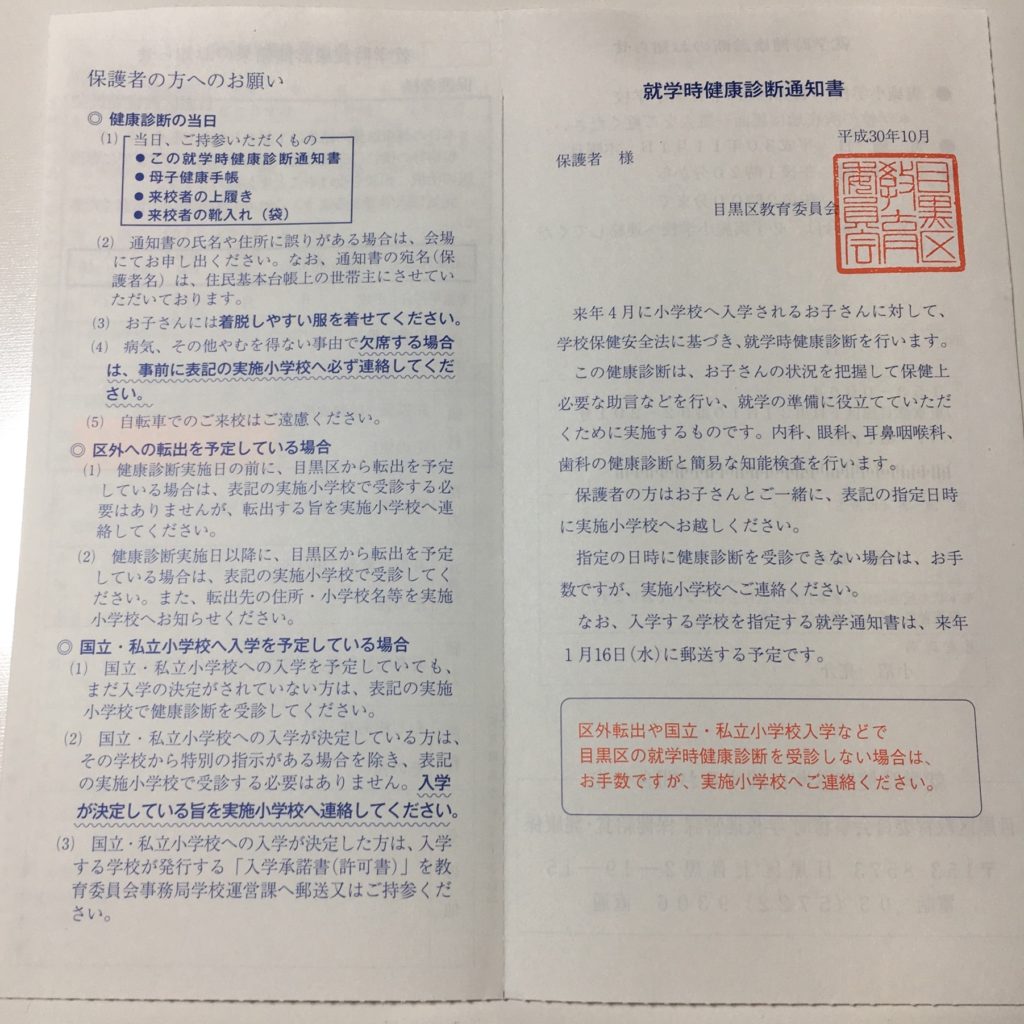 保護者の方へのお願い
◎ 健康診断の当日
(1) 当日、ご持参いただくもの
● この就学時健康診断通知書
● 母子健康手帳
● 来校者の上履き
● 来校者の靴入れ（袋）
(2) 通知書の氏名や住所に誤りがある場合は、会場
にてお申し出ください。なお、通知書の宛名(保
護者名）は、住民基本台帳上の世帯主にさせてい
ただいております。
(3) お子さんには着脱しやすい服を着せてください。
(4) 病気、その他やむを得ない事由で欠席する場合
は、事前に表記の実施小学校へ必ず連絡してくだ
さい。
(5) 自転車でのご来校はご遠慮ください。
◎ 区外への転出を予定している場合
(1) 健康診断実施日の前に、目黒区から転出を予定
している場合は、表記の実施小学校で受診する必
要はありませんが、転出する旨を実施小学校へ連
絡してください。
(2) 健康診断実施日以降に、目黒区から転出を予定
している場合は、表記の実施小学校で受診してく
ださい。また、転出先の住所・小学校名等を実施
小学校へお知らせください。
◎ 国立・私立小学校へ入学を予定している場合
(1) 国立・私立小学校への入学を予定していても、
まだ入学の決定がされていない方は、表記の実施
小学校で健康診断を受診してください。
(2) 国立・私立小学校への入学が決定している方は、
その学校から特別の指示がある場合を除き、表記
の実施小学校で受診する必要はありません。入学
が決定している旨を実施小学校へ連絡してください。
(3) 国立・私立小学校への入学が決定した方は、入学
する学校が発行する「入学承諾書(許可書)」を教
育委員会事務局学校運営課へ郵送又はご持参くだ
さい。
就学時健康診断通知書
平成30年10月
保護者 様
目黒区教育委員会
目黒区
教育
委員会
来年４月に小学校へ入学されるお子さんに対して、
学校保健安全法に基づき、就学時健康診断を行います。
この健康診断は、お子さんの状況を把握して保健上
必要な助言などを行い、就学の準備に役立てていただ
くために実施するものです。内科、眼科、耳鼻咽喉科、
歯科の健康診断と簡易な知能検査を行います。
保護者の方はお子さんとご一緒に、表記の指定日時
に実施小学校へお越しください。
指定の日時に健康診断を受診できない場合は、お手
数ですが、実施小学校へご連絡ください。
なお、入学する学校を指定する就学通知書は、来年
１月16日(水)に郵送する予定です。
区外転出や国立・私立小学校入学などで
目黒区の就学時健康診断を受診しない場合は、
お手数ですが、実施小学校へご連絡ください。